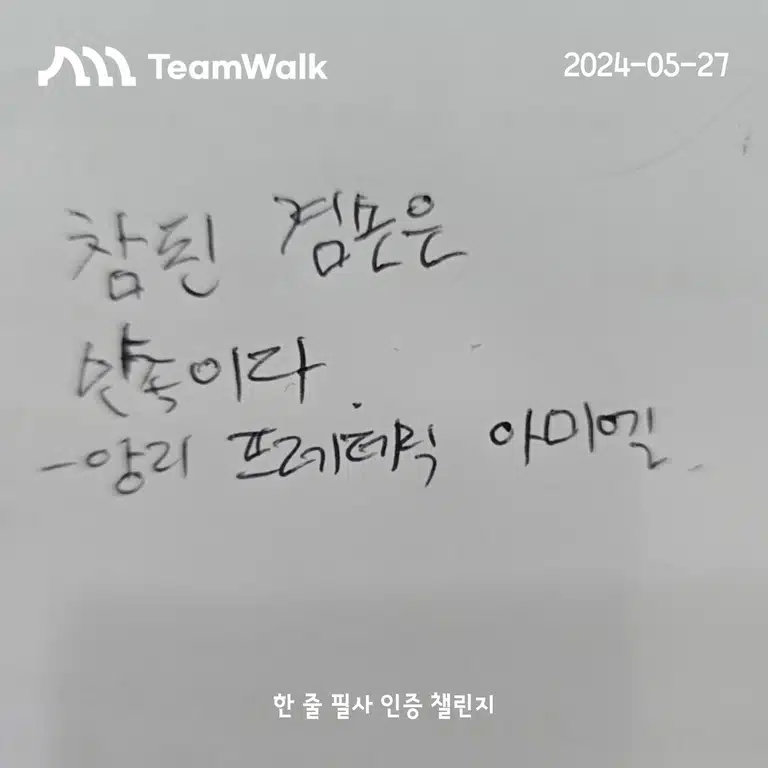 TeamWalk
2024-05-27
참된 겸손은
만족이다
-앙리 프레데릭 아미엘
한 줄 필사 인증 챌린지